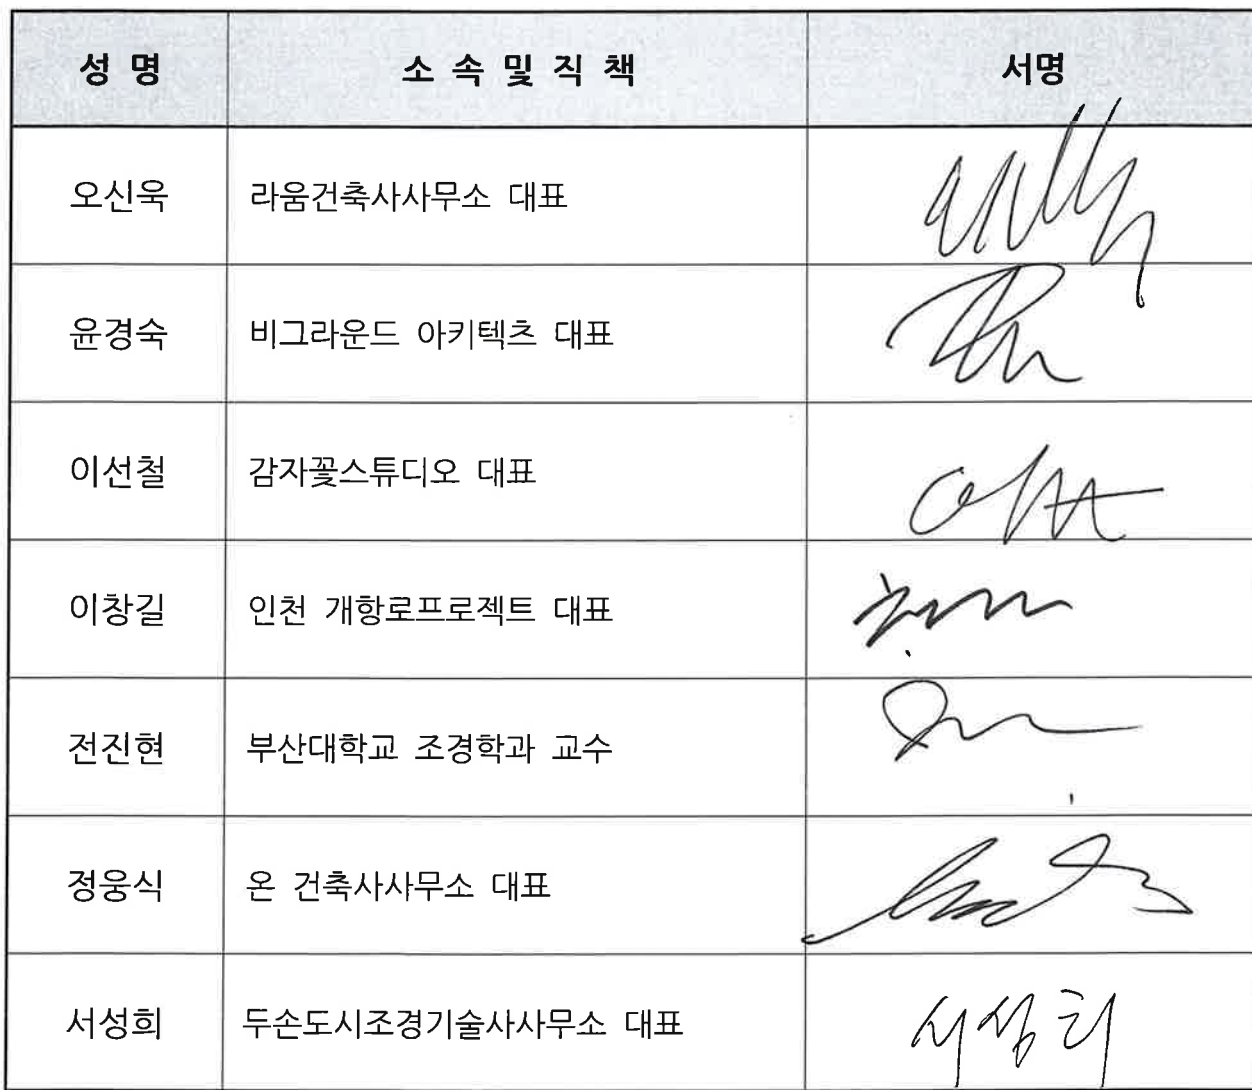 성 명 소 속 및 직 책 서명
오신욱 라움건축사사무소 대표
윤경숙 비그라운드 아키텍츠 대표
이선철 감자꽃스튜디오 대표
이창길 인천 개항로프로젝트 대표
전진현 부산대학교 조경학과 교수
정웅식 온 건축사사무소 대표
서성희 두손도시조경기술사사무소 대표 서성희